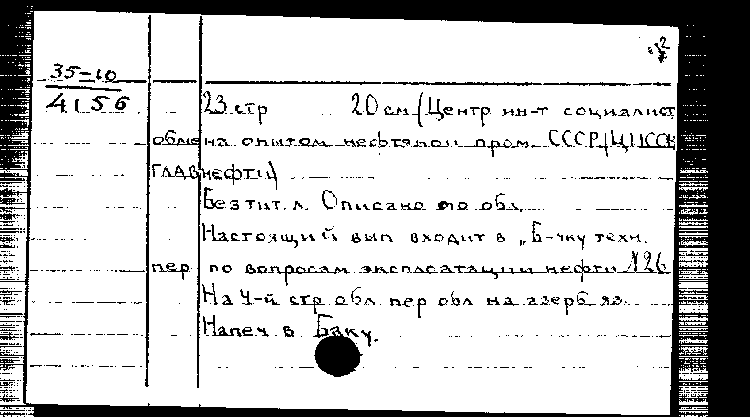 2
35-10
4156
23 стр 20 см (Центр ин-т социалист
обмена опытом нефтяной пром. СССР/ЦИСОН
ГЛАВнефти)
Без тит. л. Описано по обл.
Настоящий вып входит в „Б-чку техн.
пер по вопросам эксплоатации нефти №26
На 4-й стр обл пер обл на азерб яз.
Напеч в Баку.